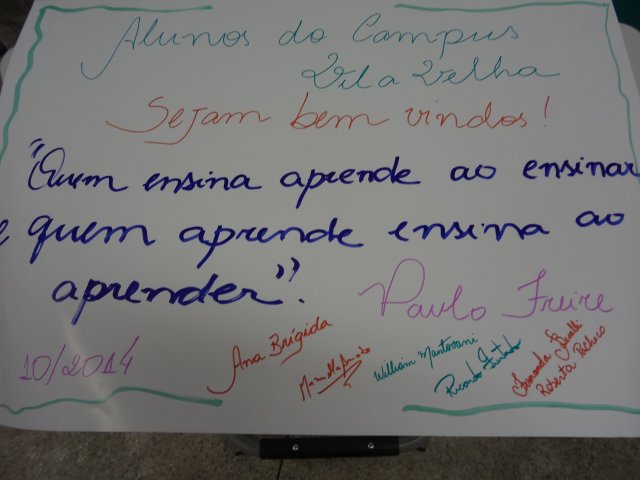 Alunos do Campus
Vila Velha
Sejam bem vindos!
"Quem ensina aprende ao ensinar
e quem aprende ensina ao
aprender".
Paulo Freire
10/2014
Ana Brígida
William Mantovani
Ricardo Furtado
Roberta Pacheco